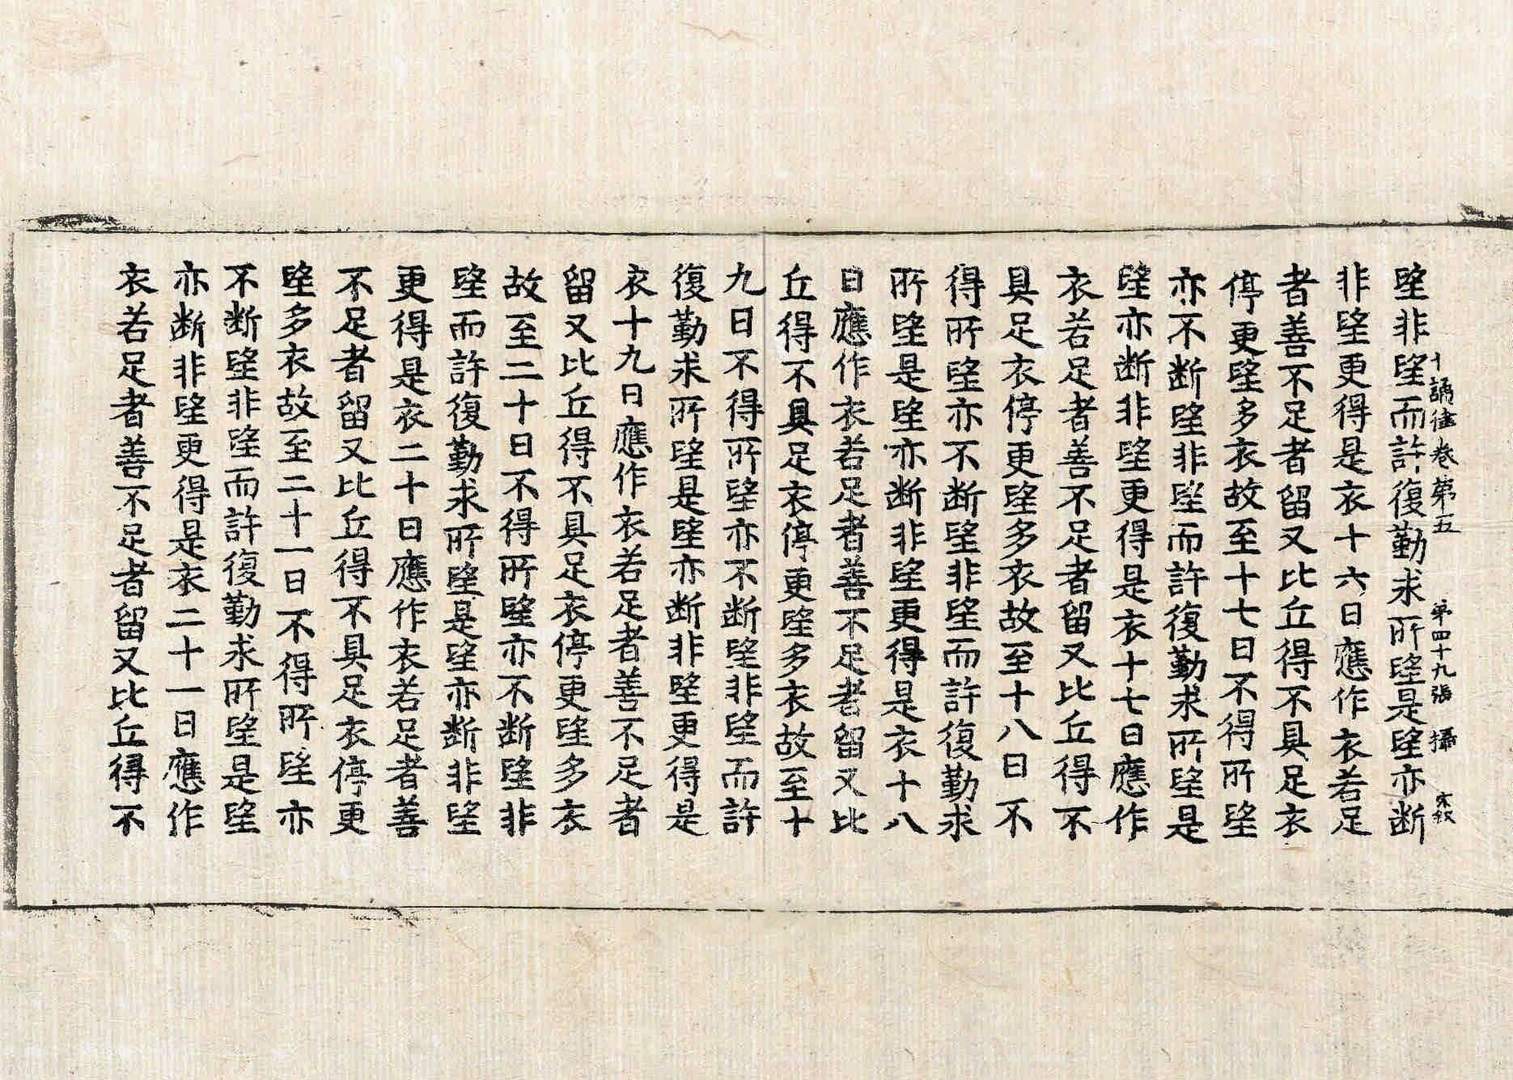 十誦律卷第五 第四十九張 攝
望非望而許復勤求所望是望亦断
非望更得是衣十六日應作衣若足
者善不足者留又比丘得不具足衣
停更望多衣故至十七日不得所望
亦不断望非望而許復勤求所望是
望亦断非望更得是衣十七日應作
衣若足者善不足者留又比丘得不
具足衣停更望多衣故至十八日不
得所望亦不断望非望而許復勤求
所望是望亦断非望更得是衣十八
日應作衣若足者善不足者留又比
丘得不具足衣停更望多衣故至十
九日不得所望亦不断望非望而許
復勤求所望是望亦断非望更得是
衣十九日應作衣若足者善不足者
留又比丘得不具足衣停更望多衣
故至二十日不得所望亦不断望非
望而許復勤求所望是望亦断非望
更得是衣二十日應作衣若足者善
不足者留又比丘得不具足衣停更
望多衣故至二十一日不得所望亦
不断望非望而許復勤求所望是望
亦断非望更得是衣二十一日應作
衣若足者善不足者留又比丘得不